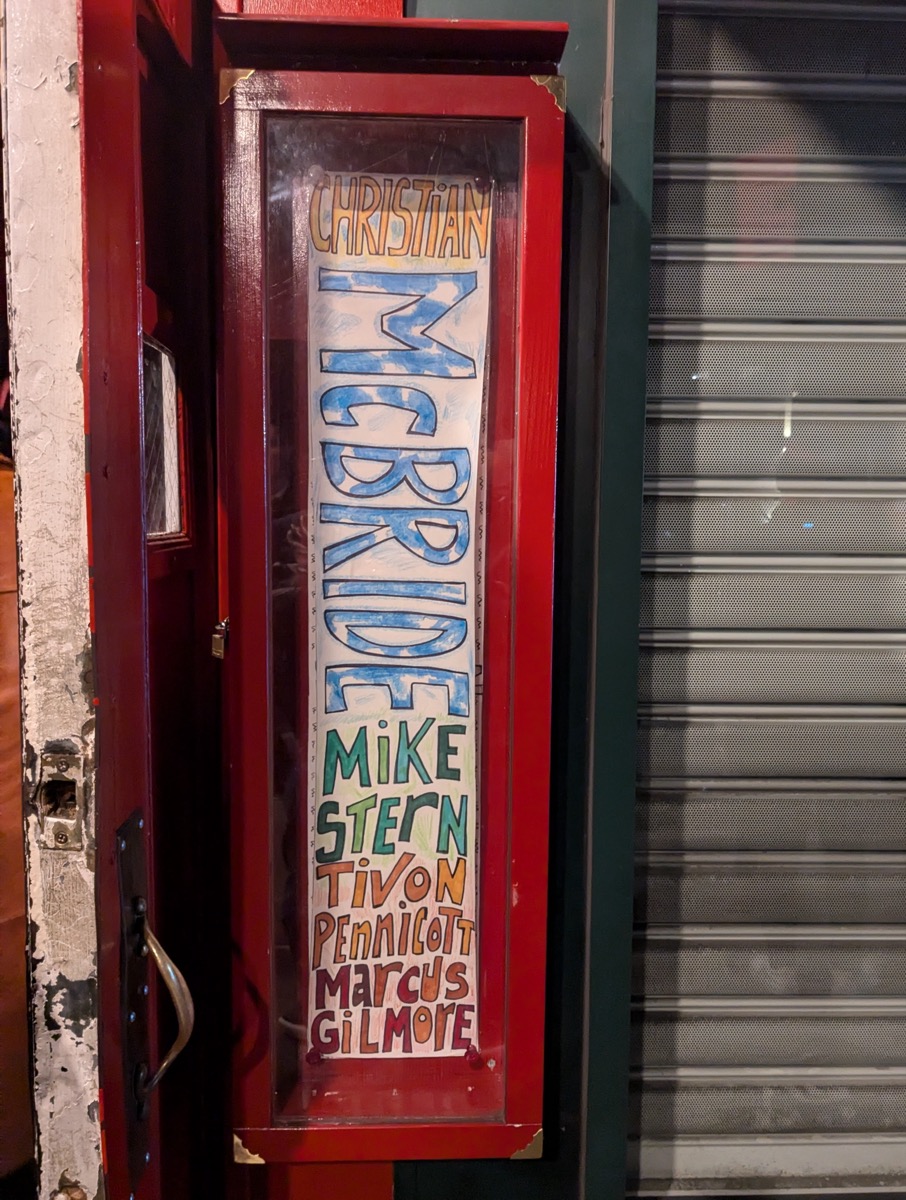 CHRISTiAN
McBRIDE
MiKE
STErN
TiVoN
PENNiCOTT
MarcuS
GiLMOrE